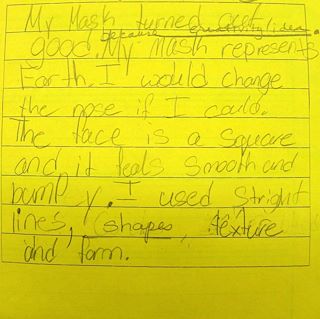 My Mask turned out
because creativity/idea.
good. My Mask represents
Earth. I would change
the nose if I could.
The face is a square
and it feals smooth and
bump y. I used stright
lines, (shapes, texture
and form.